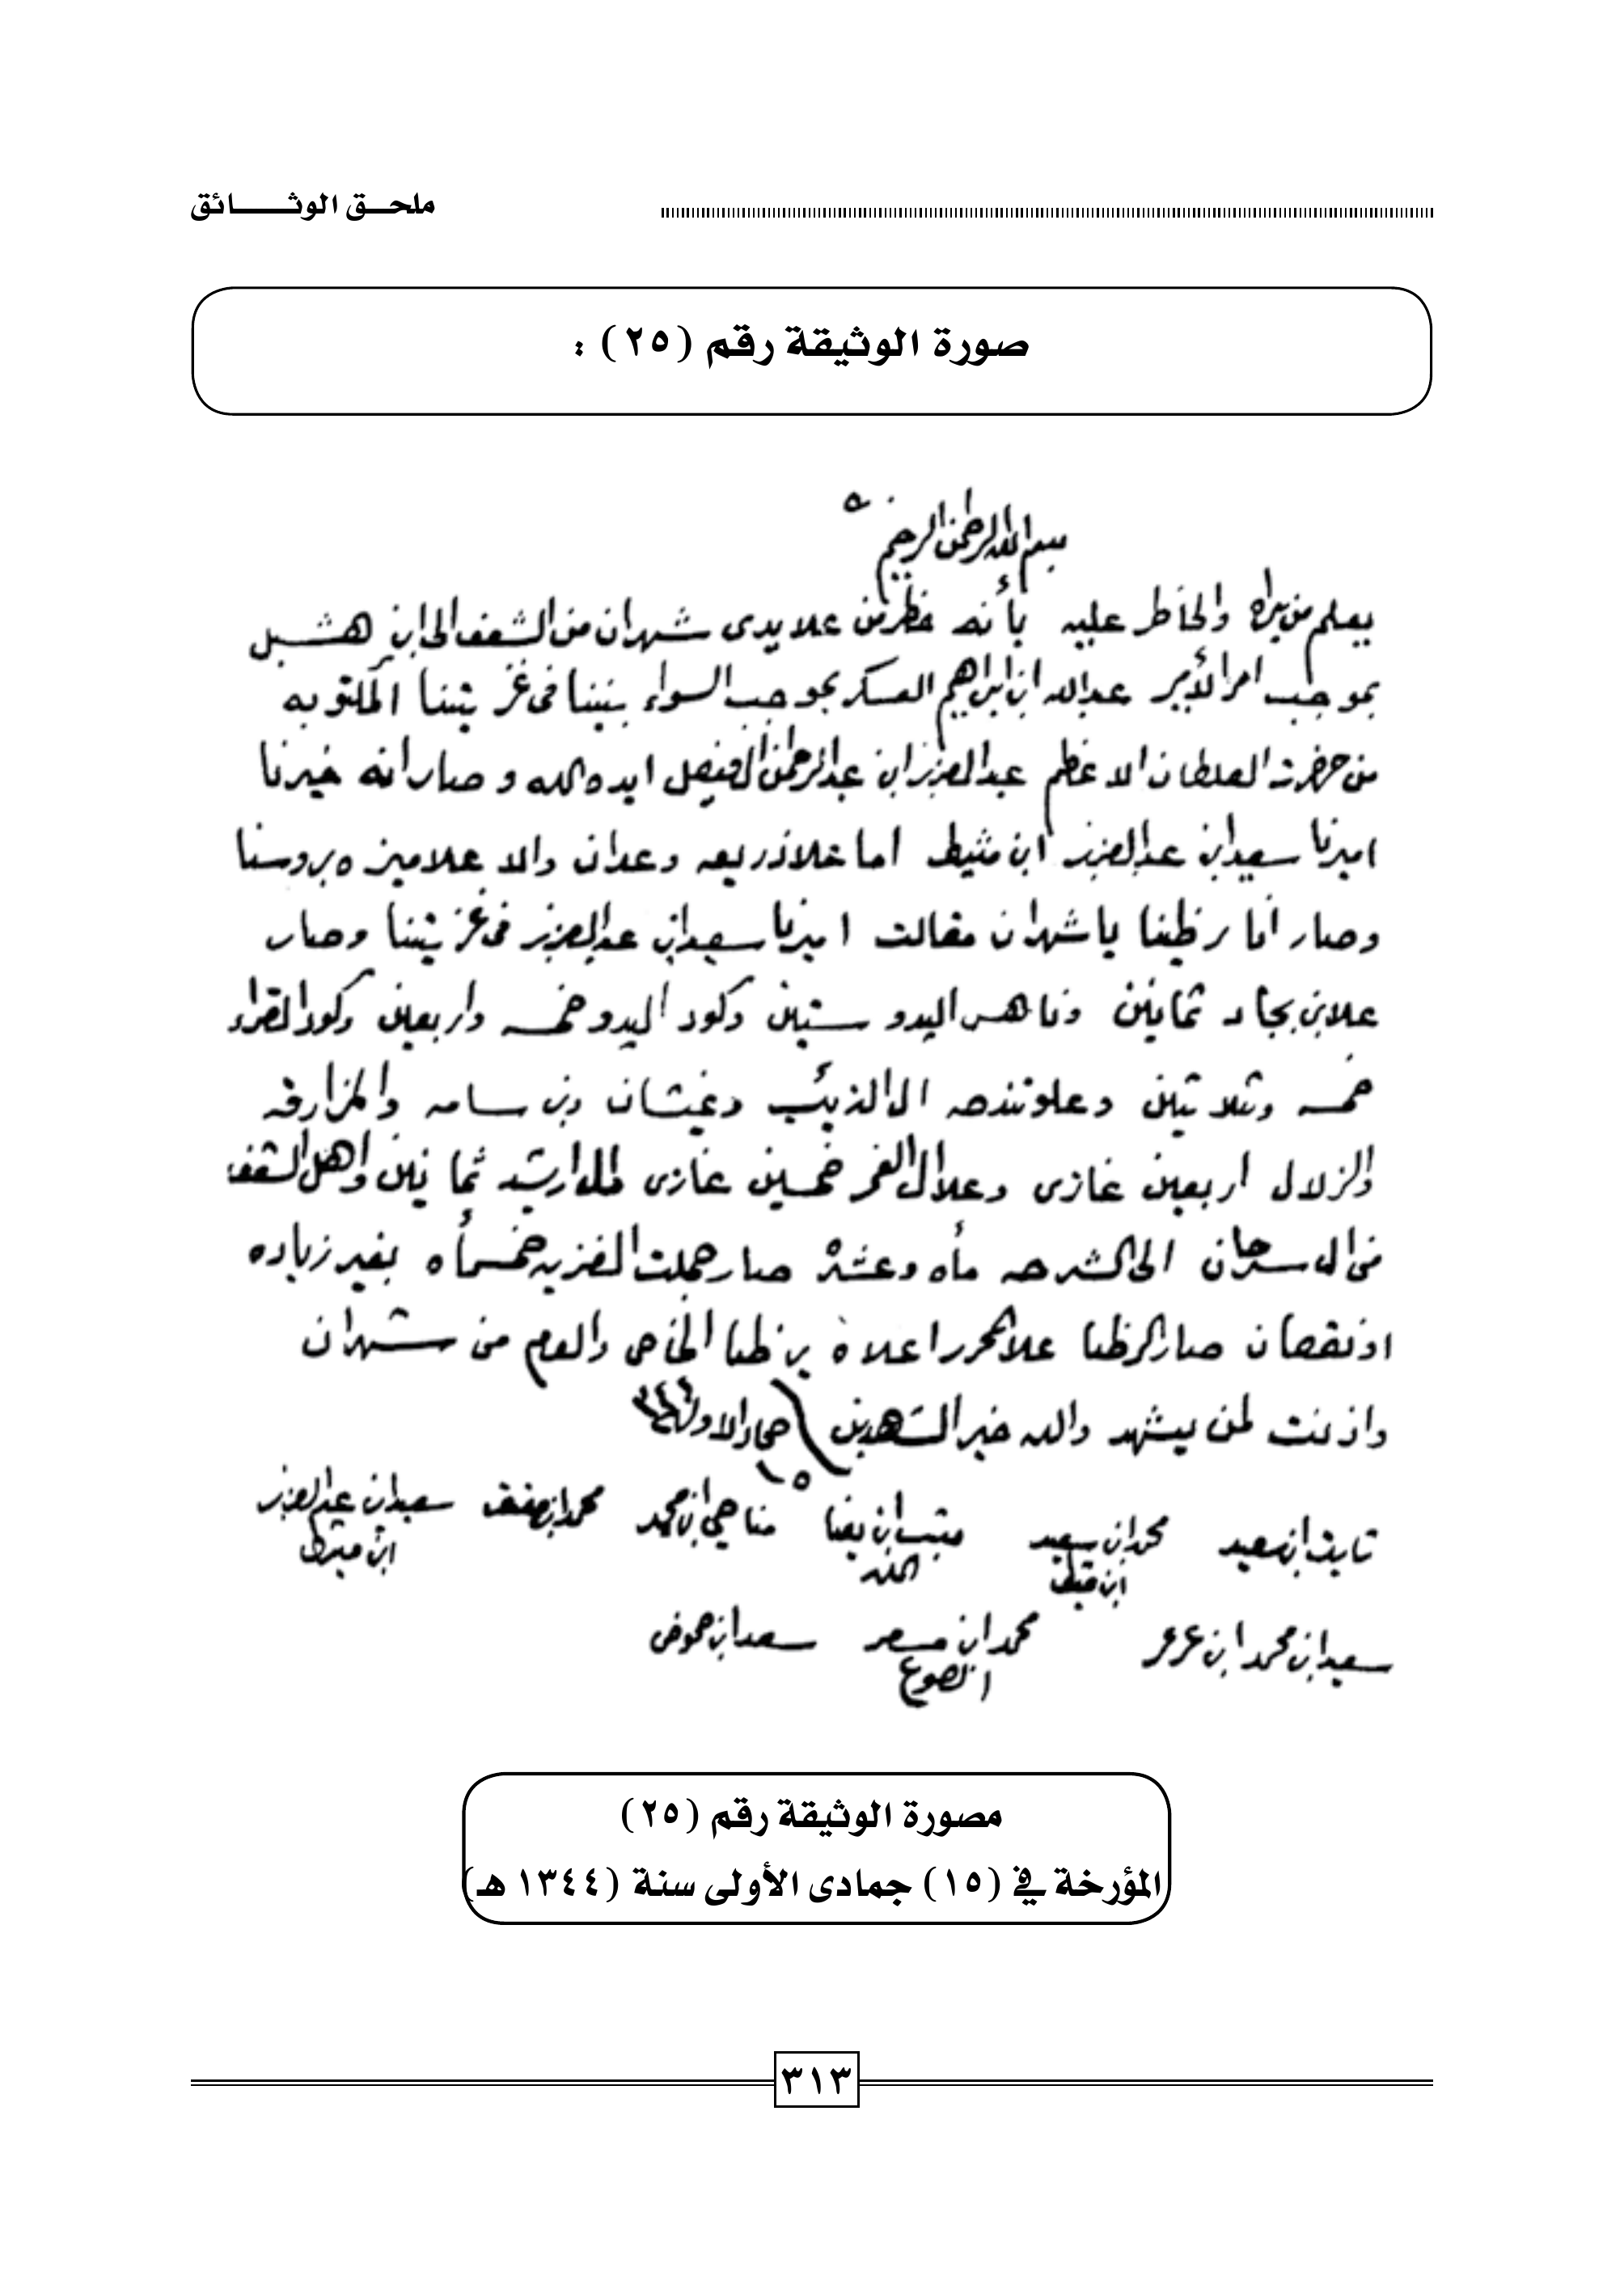 ملحـــق الوثـــــــائق
صورة الوثيقة رقم (٢٥) :
بسم الله الرحمن الرحيم
يعلم من يراه والخاطر عليه بأنه حظر من علا يدي شهران من الشعف الى ابن هشبل
بموجب امر الأمير عبدالله ابن ابراهيم العسكر بموجب السواء بيننا في غزيتنا المكتوبه
من حضرت السلطان الاعظم عبدالعزيز ابن عبدالرحمن الفيصل ايده الله وصار انه خيرنا
اميرنا سعيد ابن عبدالعزيز ابن مشيط اما خلا ذريعه وعدان والا علا ميزه بروسنا
وصار انا رظينا يا شهران مقالت اميرنا سعيد ابن عبدالعزيز في غزيتنا وصار
علا بن بجاد ثمانين وناهس البدو ستين وكود البدو خمسه واربعين وكود القراء
خمسه وثلاثين وعلو تندحه ال الذيب دغيشان وبن سامه والمزارقه
والزلال اربعين غازي وعلا ال الغمر خمسين غازي ال ارشيد ثمانين واهل الشعف
من ال سرحان الى الشرحه مأه وعشره صار جملت الغزيه خمسمأه بغير زياده
او نقصان صار الرظا علا محرر اعلاه برظا الخاص والعام من شهران
واذنت لمن يشهد والله خير الشهدين جماد الاول
١٥
ثابت ابن سعيد محمد ابن سعيد ابن يعنا مناحي ابن محمد محمد ابن سعيد ابن عبدالعزيز
سعيد ابن محمد ابن عرعر محمد ابن مسفر سعد ابن حموض
مصورة الوثيقة رقم (٢٥)
المؤرخة في (١٥) جمادى الأولى سنة (١٣٤٤ هـ)
٣١٣